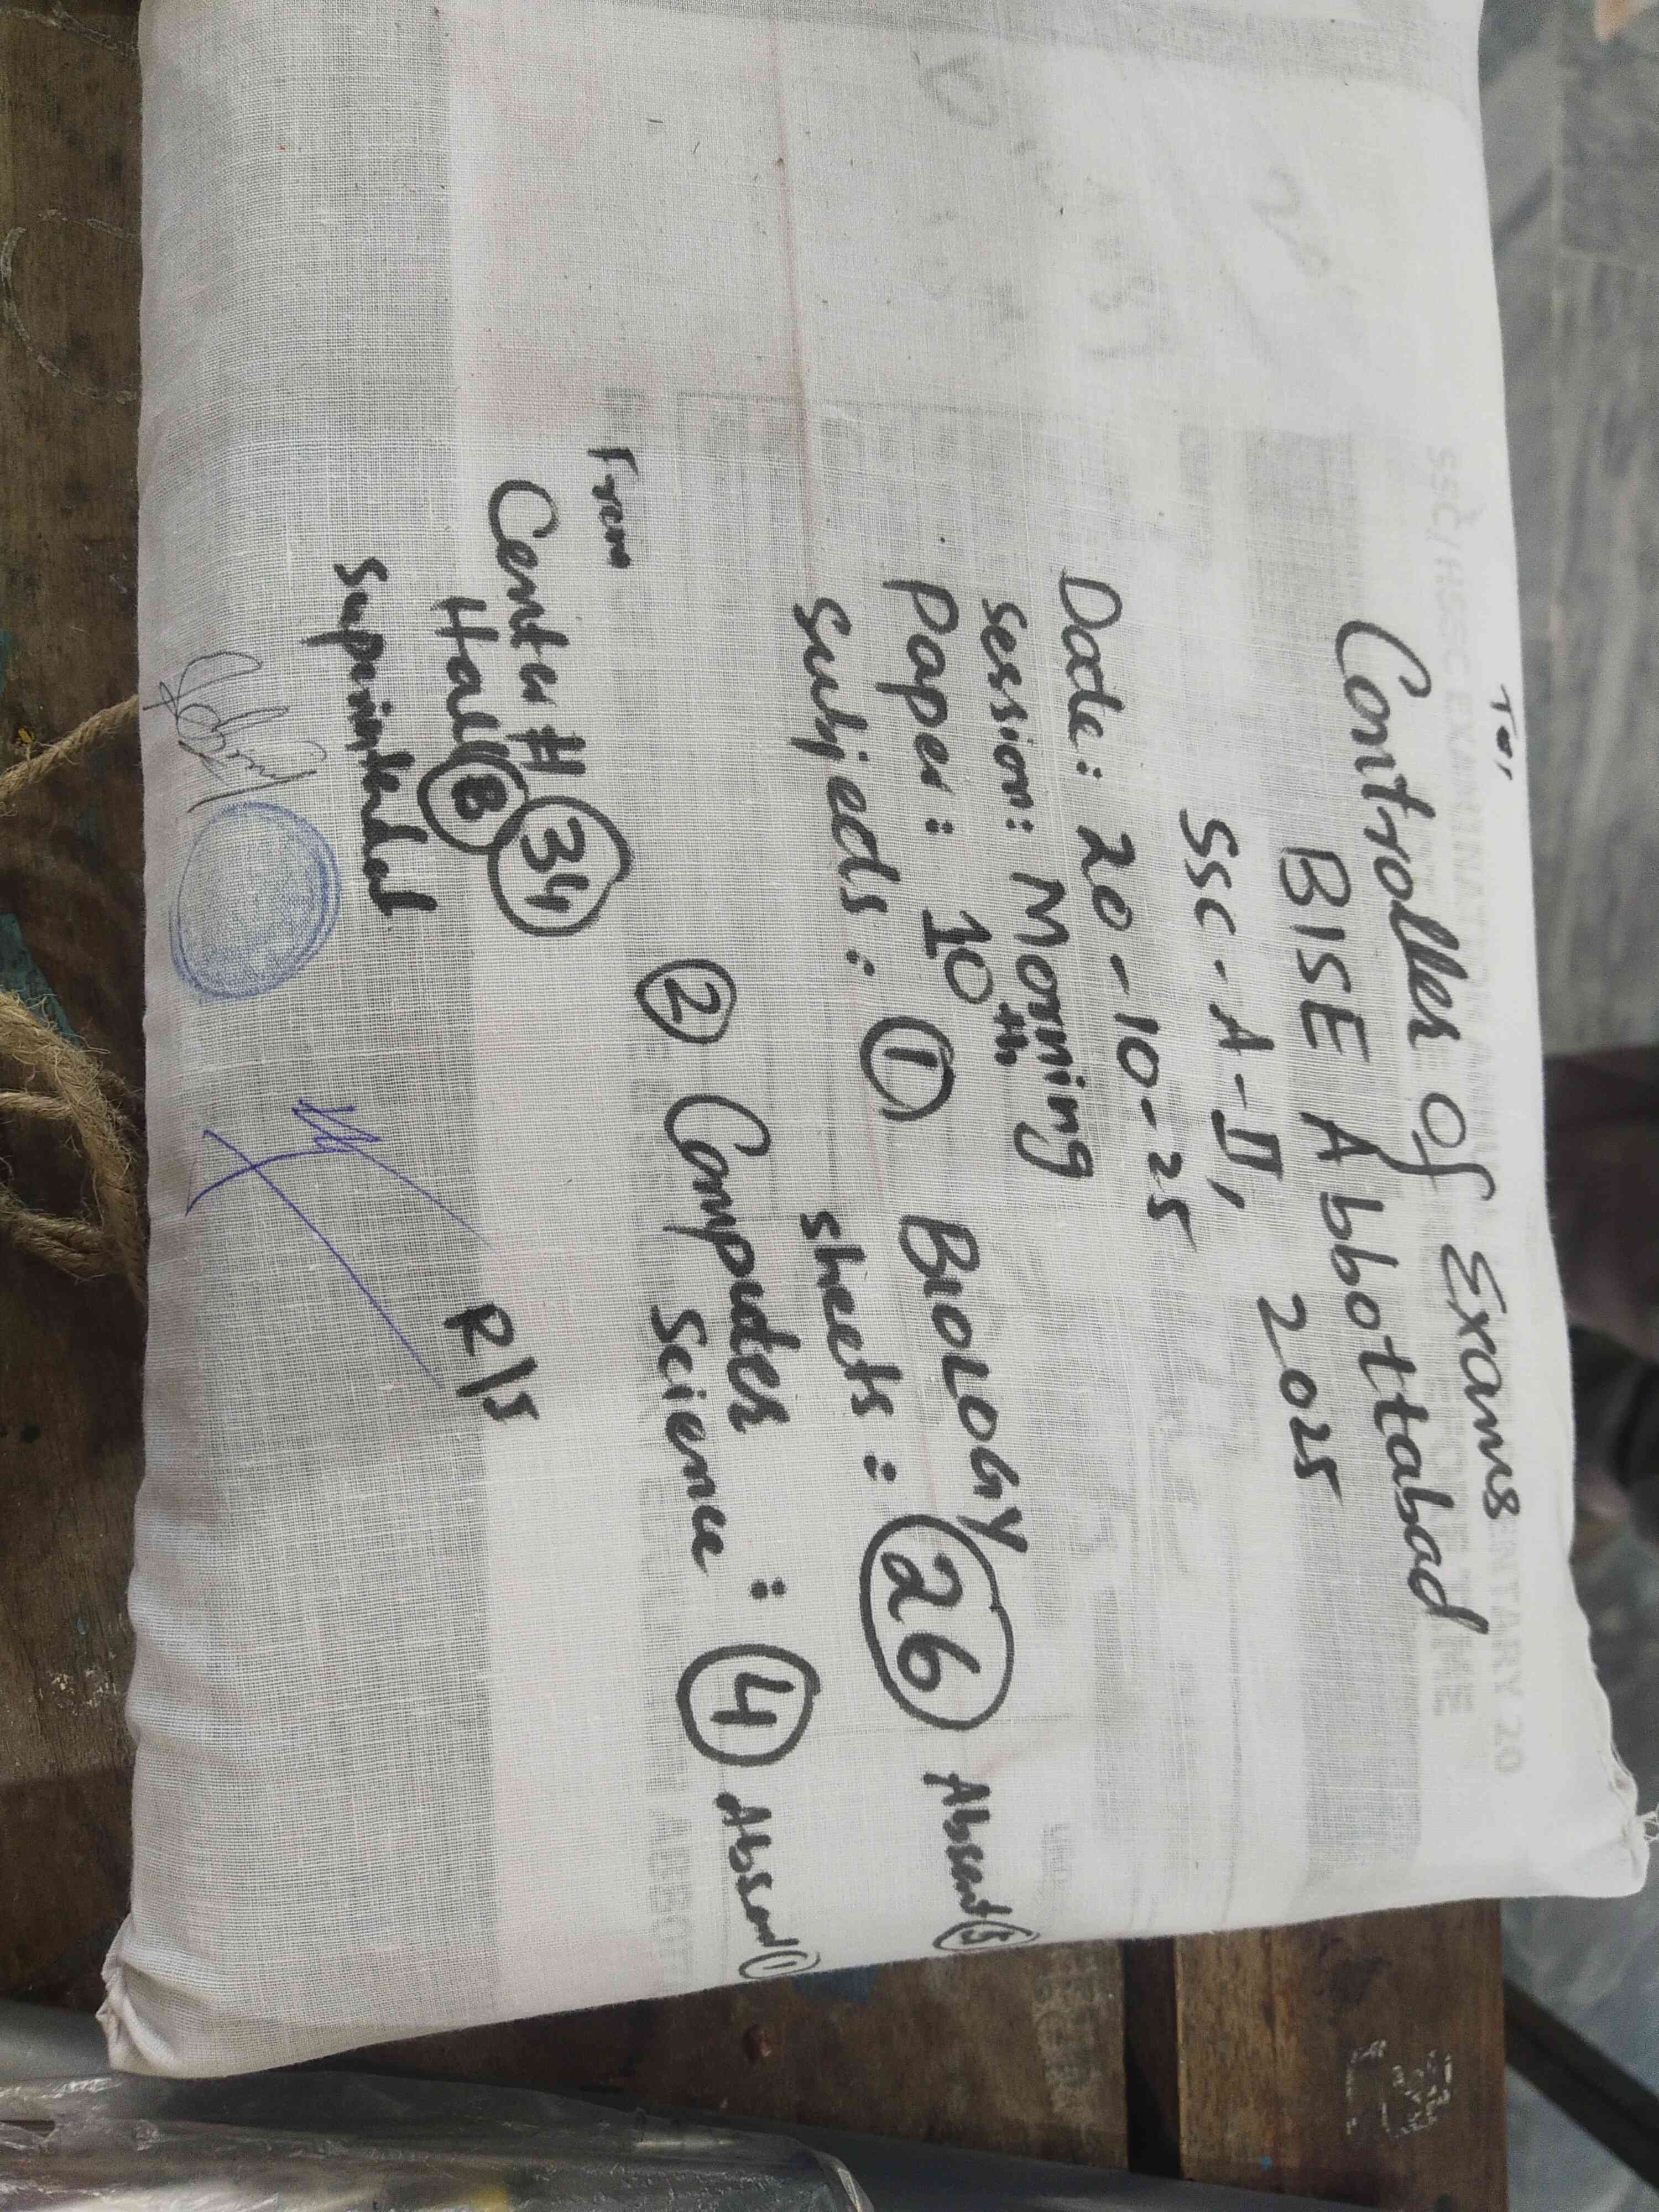 To,
Controller Of Exams
BISE Abbottabad
SSC-A-II, 2025
Date: 20-10-25
Session: Morning
Paper: 10th
Subjects: ① BIOLOGY
sheets: 26 Absent
② Computer Science: 4 Absent 1
From
Center # 34
Hall B
R/S